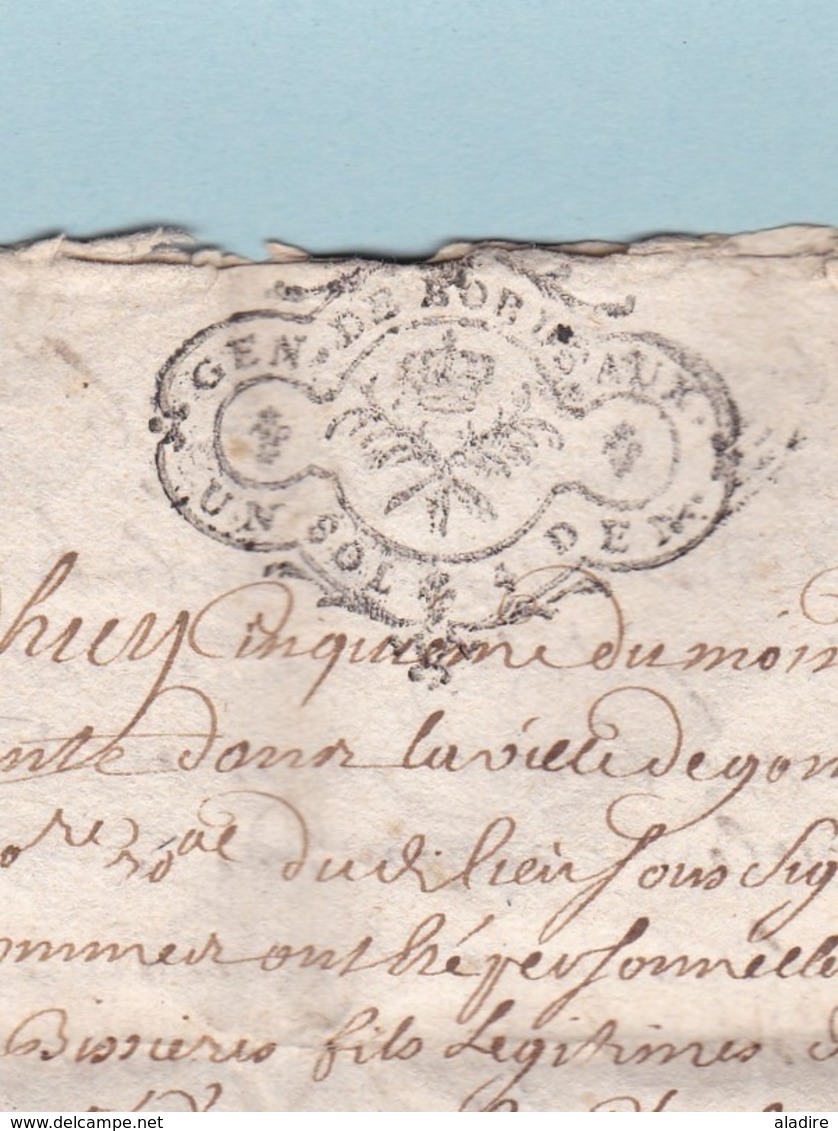 GEN. DE BORDEAUX.
UN SOL 4 DEN.
huy Cinquieme du mois
ente dans la ville de gon
re royal dud. lieu sous sig
ommes ont été personnelle
Bissieres fils Legitimes d
aladire